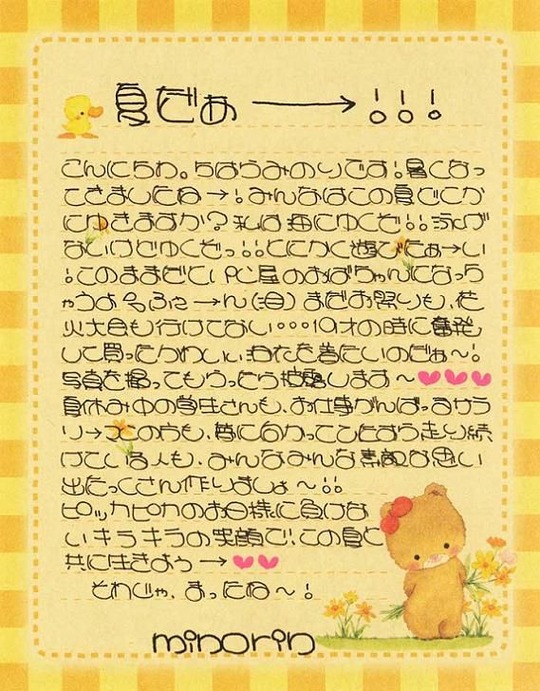 夏だぁ→!!!
こんにちわ。ちはらみのりです!暑くなっ
てきましたね→!みんなはこの夏どこか
にゆきますか?私は海にゆくぞ!!泳げ
ないけどゆくぞっ!!とにかく遊びたぁ→い
!このままだと、PC屋のおばちゃんになっち
ゃうよぅふぇ→ん(泣)まだお祭りも、花
火大会も行けてない・・・19才の時に奮発
して買ったかわいい、ゆかたを着たいのだぁ〜!
写真を撮ってもらったら披露します〜♥♥♥
夏休み中の学生さんも、お仕事がんばっるサラ
リ→の方も、夢に向かってひたすら走り続
けている人も、みんなみんな素敵な思い
出たっくさん作りましょぉ〜!!
ピッカピカのお日様に負けな
いキラキラの笑顔で、この夏と
共に生きよぅ→♥♥
それじゃ、まったね〜!
minorin